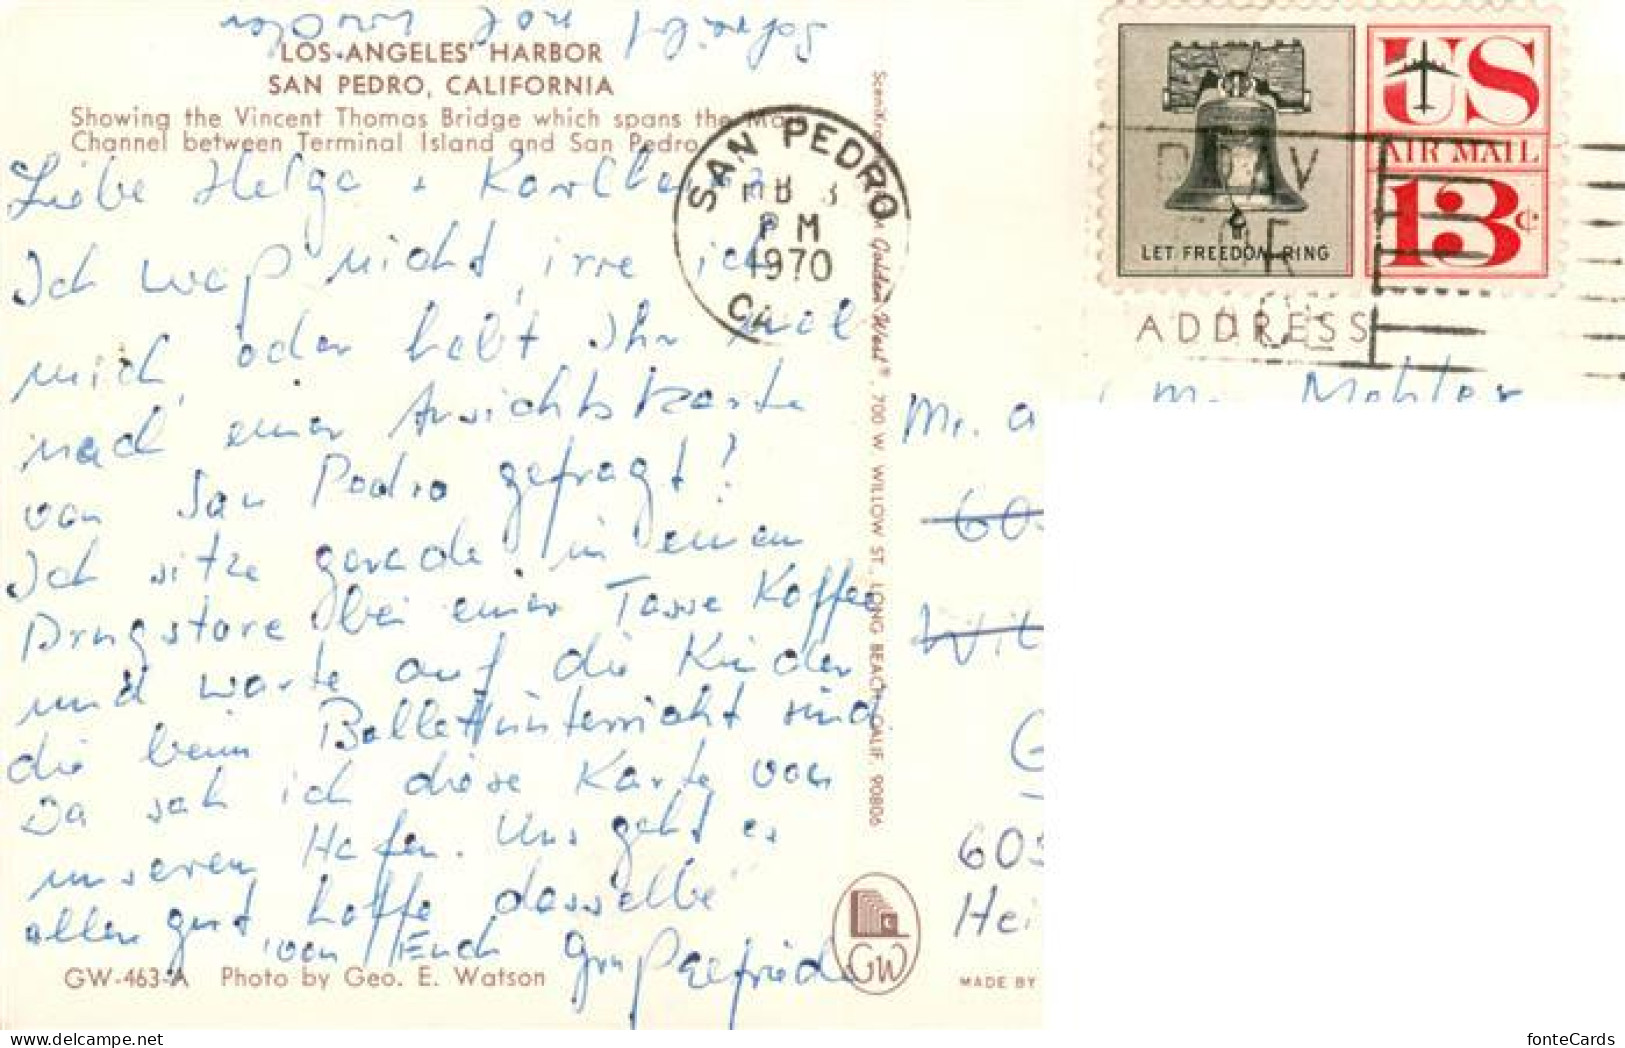 LOS ANGELES' HARBOR
SAN PEDRO, CALIFORNIA
Showing the Vincent Thomas Bridge which spans the Main
Channel between Terminal Island and San Pedro
Liebe Helga + Karlheinz
Ich weiß nicht, irre ich
mich, oder habt Ihr mal
nach einer Ansichtskarte
von San Pedro gefragt!
Ich sitze gerade in einem
Drugstore bei einer Tasse Kaffee
und warte auf die Kinder
die beim Ballettunterricht sind
Da sah ich diese Karte von
unserem Hafen. Uns geht es
allen gut hoffe dasselbe
von Euch Gruß Elfriede
GW-463-A Photo by Geo. E. Watson
Golden West®, 700 W. WILLOW ST., LONG BEACH, CALIF. 90806
GW
SAN PEDRO
PM
1970
CA
US
AIR MAIL
13¢
LET FREEDOM RING
ADDRESS
Mr. a M. Mohler
60
Wil
G
605
Hei
MADE BY
fonteCards